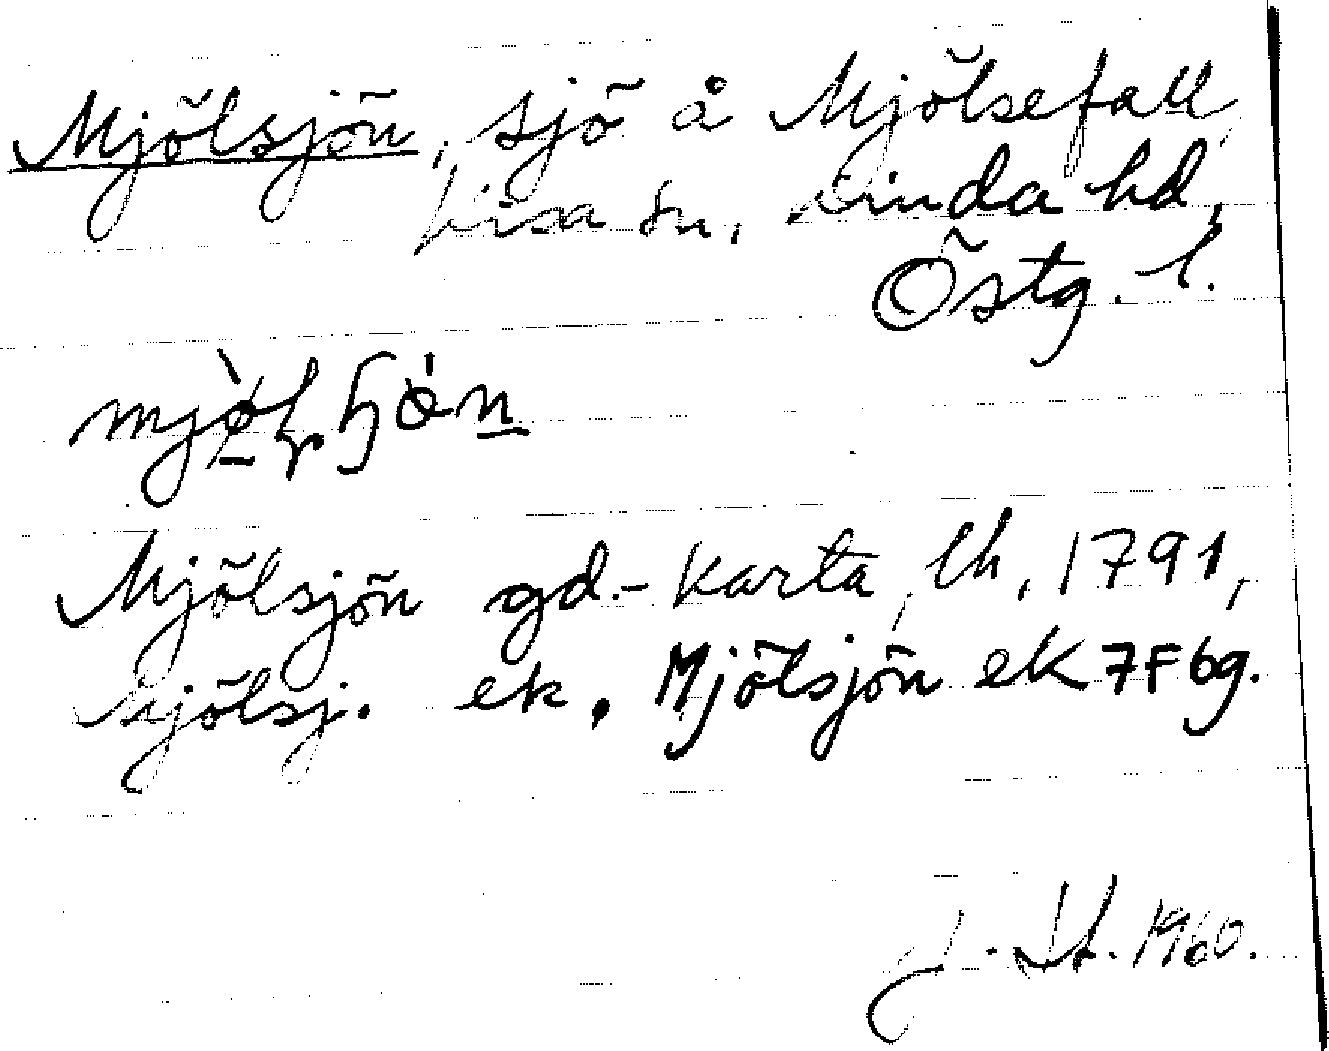 Mjölsjön, sjö å Mjölsefall,
Kisa sn, Kinda hd,
Östg. l.
Mjölsjön gd.-karta, lh, 1791,
Mjölsj. ek. Mjölsjön ek 7F6g.
1960.